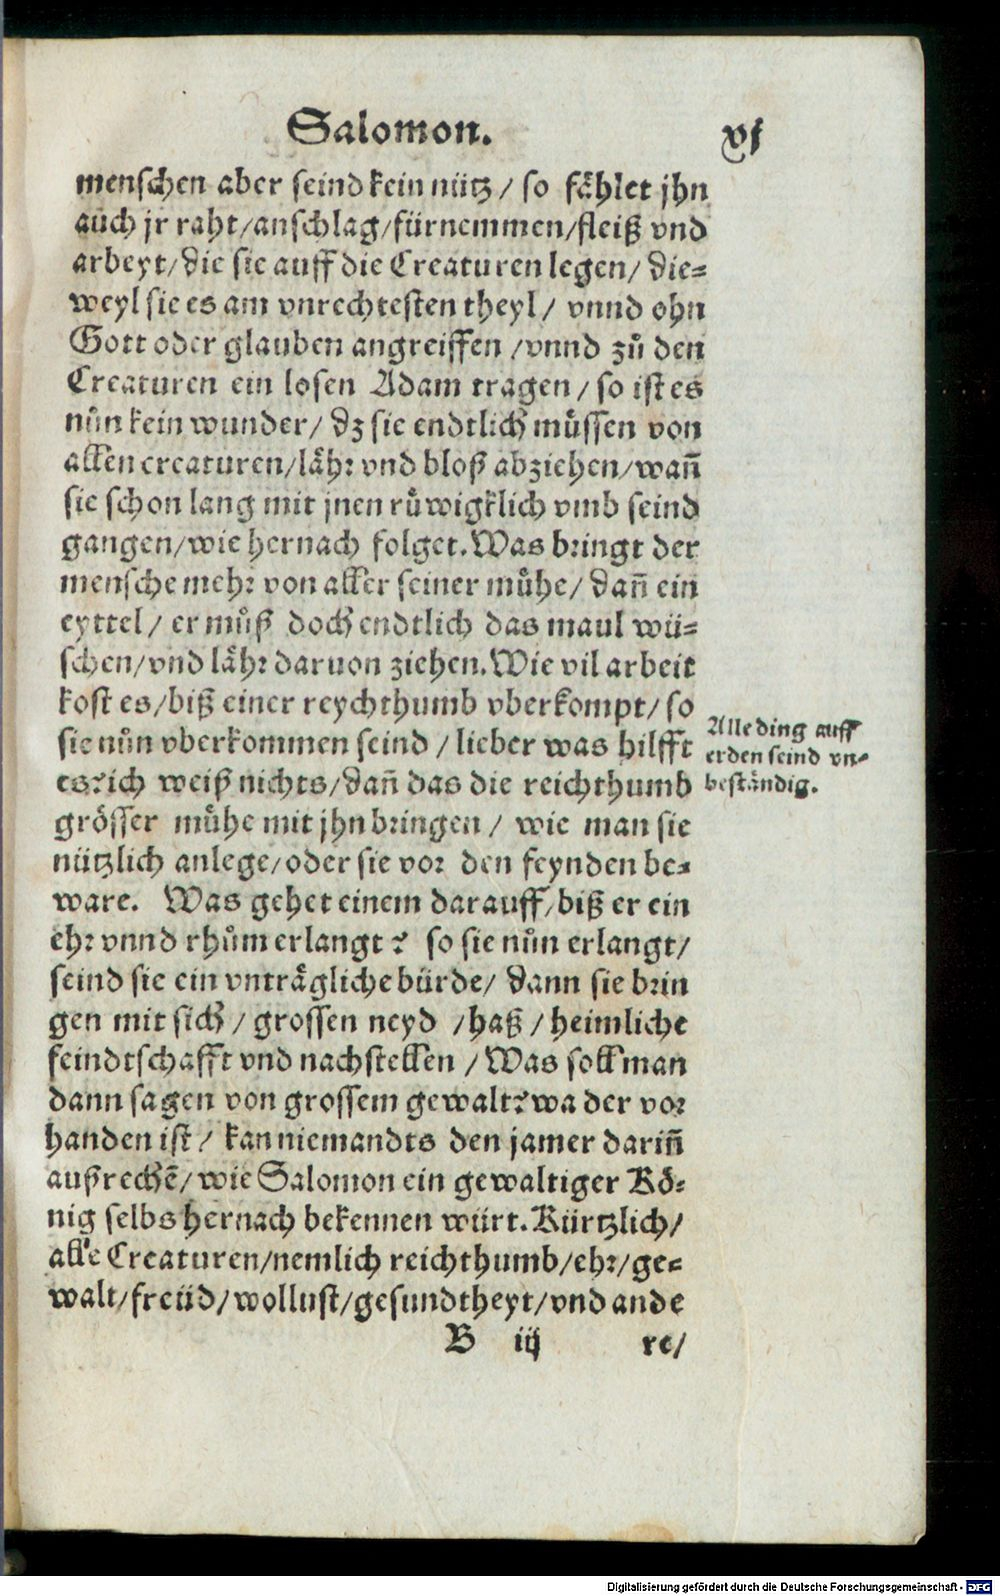 Salomon. xj
menschen aber seind kein nütz / so fählet jhn
auch jr raht/anschlag/fürnemmen/fleiß vnd
arbeyt/die sie auff die Creaturen legen/ die-
weyl sie es am vnrechtesten theyl/ vnnd ohn
Gott oder glauben angreiffen /vnnd zů den
Creaturen ein losen Adam tragen / so ist es
nůn kein wunder/ dz sie endtlich můssen von
allen creaturen/lähr vnd bloß abziehen/wañ
sie schon lang mit jnen růwigklich vmb seind
gangen/wie hernach folget. Was bringt der
mensche mehr von aller seiner můhe/ dañ ein
eyttel/ er můß doch endtlich das maul wü-
schen/vnd lähr daruon ziehen. Wie vil arbeit
kost es/biß einer reychthumb vberkompt/ so
sie nůn vberkommen seind / lieber was hilfft
es? ich weiß nichts/dañ das die reichthumb
grösser můhe mit jhn bringen / wie man sie
nützlich anlege/oder sie vor den feynden be-
ware. Was gehet einem darauff/biß er ein
ehr vnnd rhům erlangt? so sie nůn erlangt/
seind sie ein vnträgliche bürde/ dann sie brin
gen mit sich / grossen neyd /haß / heimliche
feindtschafft vnd nachstellen / Was soll man
dann sagen von grossem gewalt? wa der vor
handen ist / kan niemandts den jamer dariñ
außrechē/ wie Salomon ein gewaltiger Kö-
nig selbs hernach bekennen würt. Kürtzlich/
alle Creaturen/nemlich reichthumb/ehr/ge-
walt/freüd/wollust/gesundtheyt/vnd ande
B iij re/
Alle ding auff
erden seind vn-
beständig.
Digitalisierung gefördert durch die Deutsche Forschungsgemeinschaft - DFG